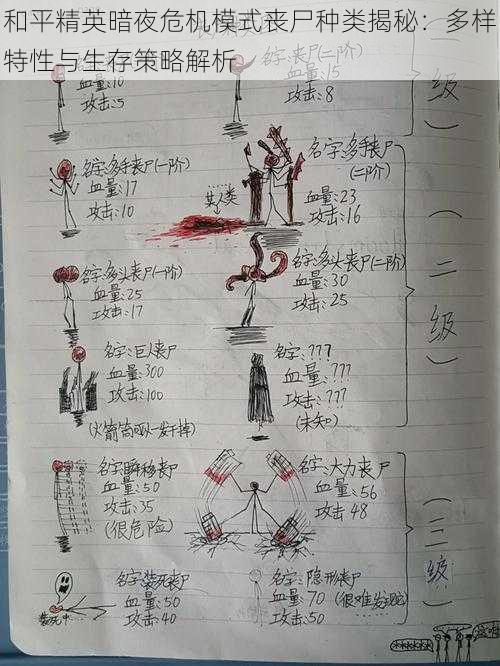 和平精英暗夜危机模式丧尸种类揭秘：多样
特性与生存策略解析
血量:10
攻击:5
血量:15
攻击:8
级
（一）
名字:多手丧尸(一阶)
血量:17
攻击:10
名字:多手丧尸
(二阶)
血量:23
攻击:16
名字:多头丧尸(一阶)
血量:25
攻击:17
名字:多头丧尸(二阶)
血量:30
攻击:25
（二级）
名字:巨人丧尸
血量:300
攻击:100
名字:???
血量:???
攻击:???
(未知)
名字:瞬移丧尸
血量:50
攻击:35
(很危险)
名字:大力丧尸
血量:56
攻击 48
名字:装死丧尸
血量:50
攻击:40
装死中...
名字:隐形丧尸
血量:70 (很难发现)
攻击:50
（三级）